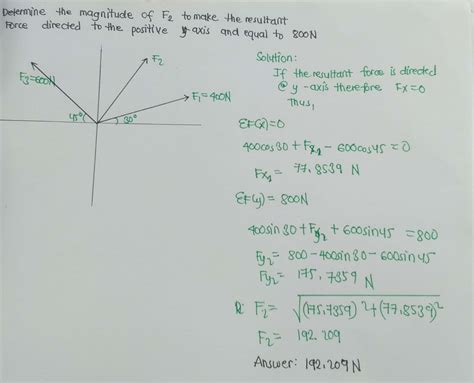 Determine the magnitude of F₂ to make the resultant
Force directed to the positive y-axis and equal to 800N
F₂
F₃=600N
F₁=400N
45°
30°
Solution:
If the resultant force is directed
@ y-axis therefore Fx=0
Thus,
ΣF(x)=0
400cos30+Fx₂-600cos45=0
Fx₂= 77.8539 N
ΣF(y)=800N
400sin30+Fy₂+600sin45=800
Fy₂= 800-400sin30-600sin45
Fy₂= 175.7359 N
R: F₂= √(175.7359)²+(77.8539)²
F₂= 192.209
Answer: 192.209N